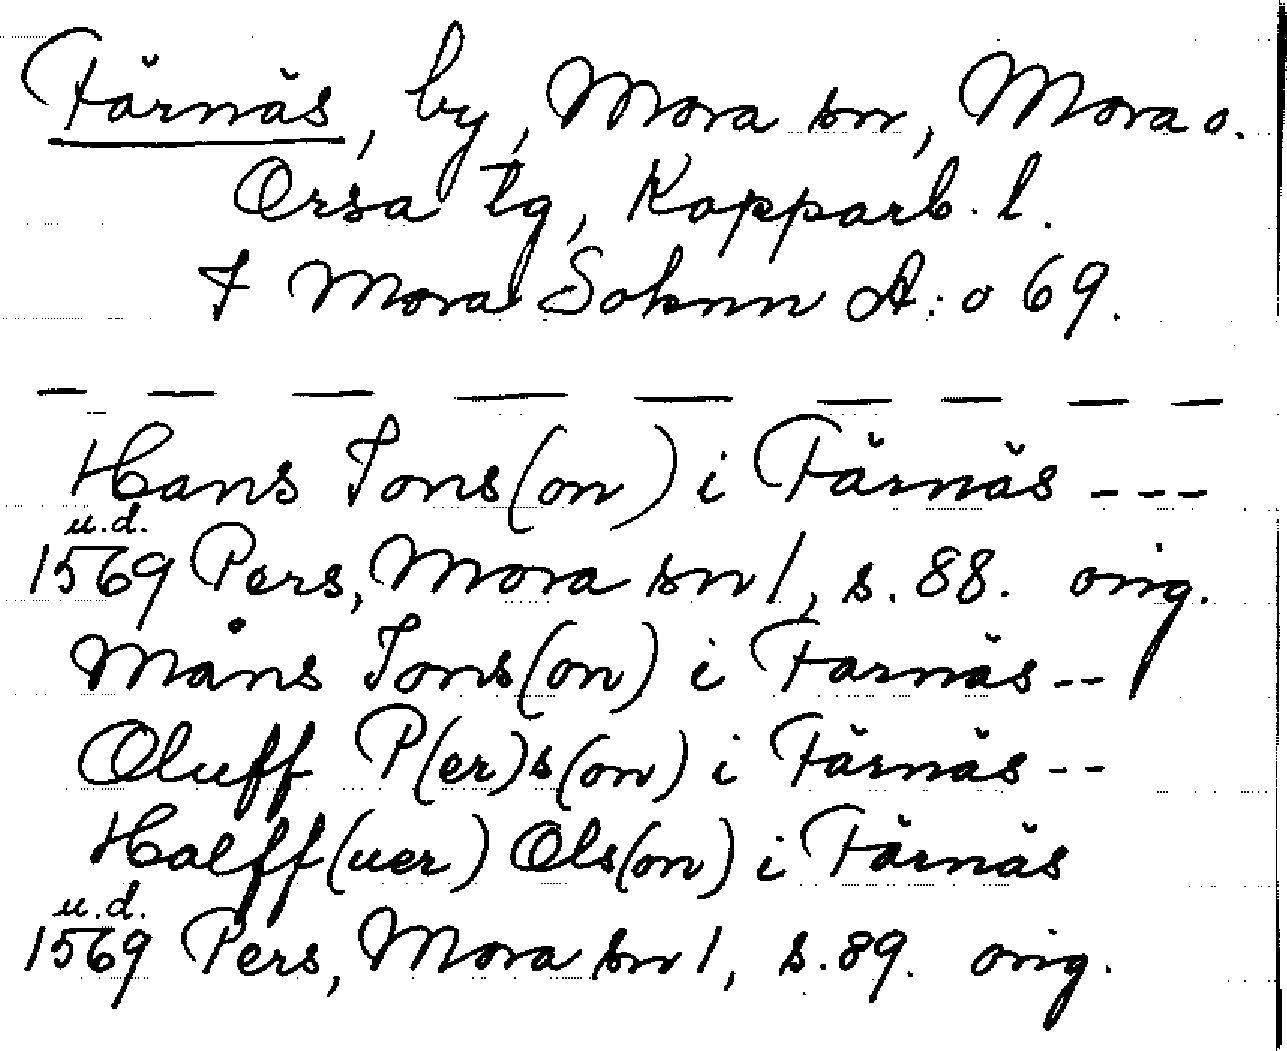 Färnäs, by, Mora sn, Mora o.
Orsa tg, Kopparb. l.
I Mora Soknn A:o 69.
— — — — — — — — —
Hans Jons(on) i Färnäs ---
u.d.
1569 Pers, Mora sn 1, s. 88. orig.
Måns Jons(on) i Farnäs --
Oluff P(er)s(on) i Färnäs --
Halff(uer) Ols(on) i Färnäs
u.d.
1569 Pers, Mora sn 1, s. 89. orig.